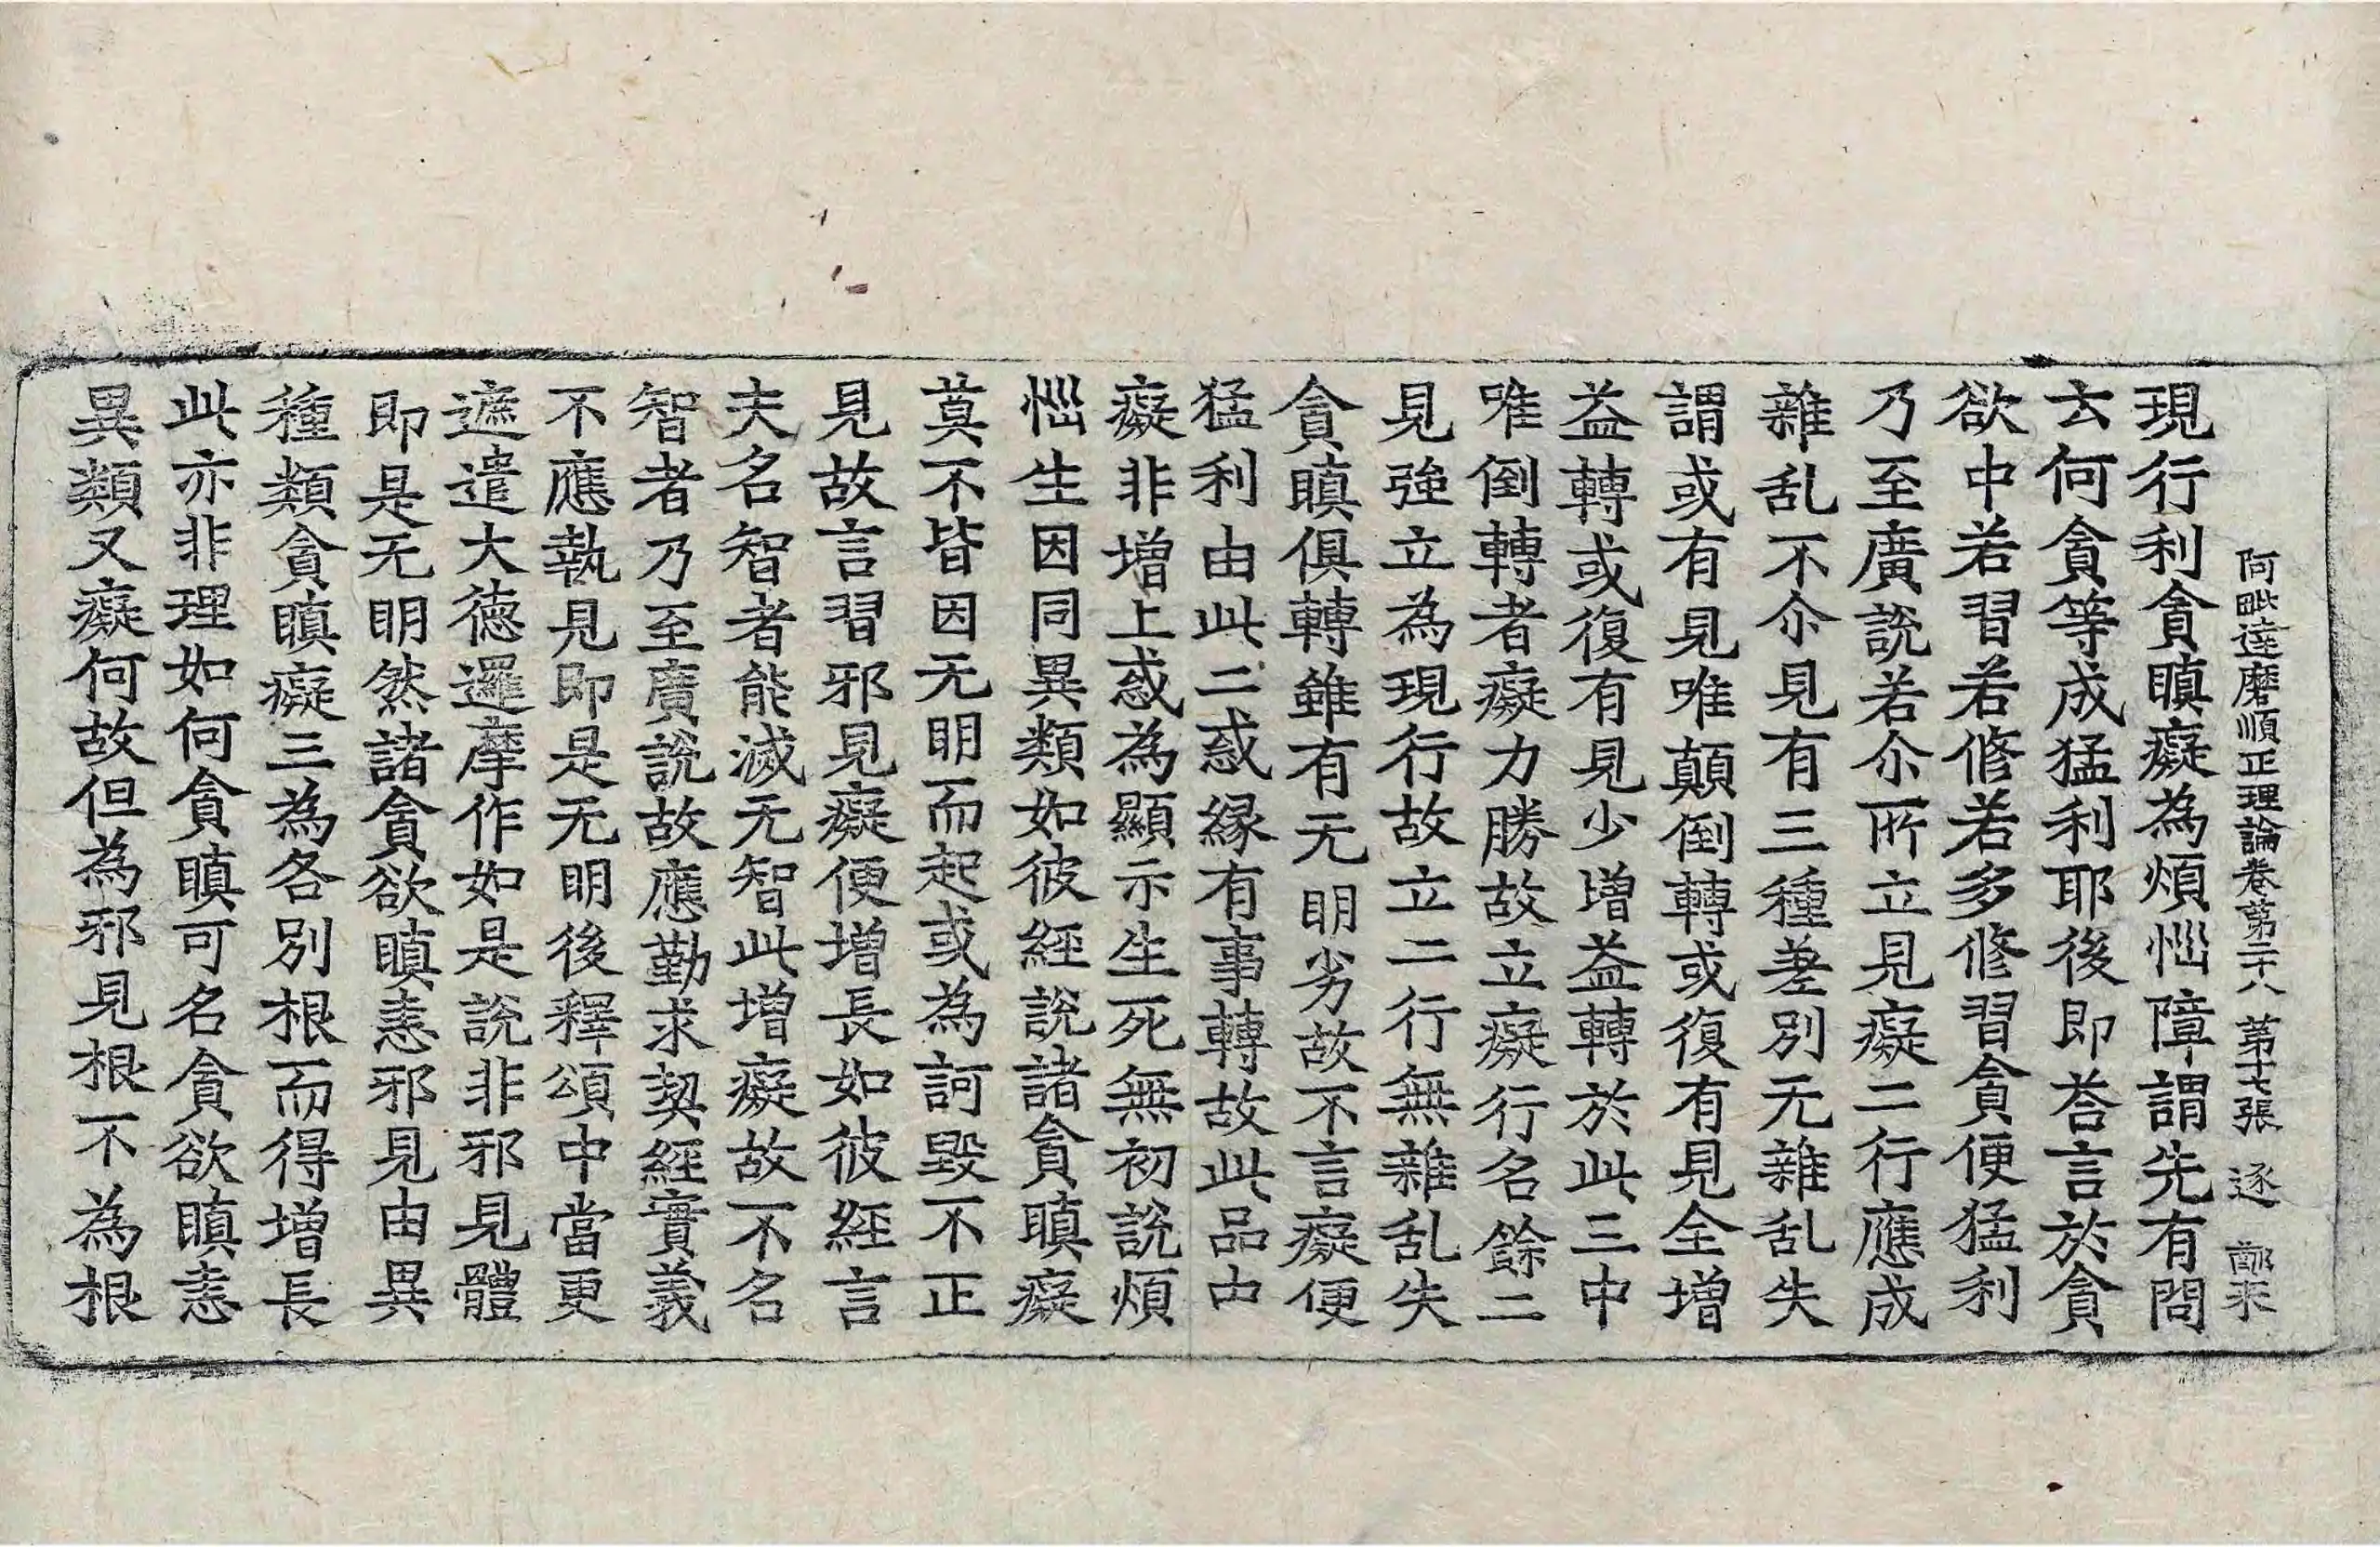 阿毗達磨順正理論卷第二十八 第十七張 逐
現行利貪瞋癡為煩惱障謂先有問
去何貪等成猛利耶後即荅言於貪
欲中若習若修若多修習貪便猛利
乃至廣說若尒所立見癡二行應成
雜乱不尒見有三種差別无雜乱失
謂或有見唯顛倒轉或復有見全增
益轉或復有見少增益轉於此三中
唯倒轉者癡力勝故立癡行名餘二
見強立為現行故立二行無雜乱失
貪瞋俱轉雖有无明劣故不言癡便
猛利由此二惑緣有事轉故此品中
癡非增上惑為顯示生死無初說煩
惱生因同異類如彼經說諸貪瞋癡
莫不皆因无明而起或為訶毀不正
見故言習邪見癡便增長如彼經言
夫名智者能滅无智此增癡故不名
智者乃至廣說故應勤求契經實義
不應執見即是无明後釋頌中當更
遮遣大德邏摩作如是說非邪見體
即是无明然諸貪欲瞋恚邪見由異
種類貪瞋癡三為各別根而得增長
此亦非理如何貪瞋可名貪欲瞋恚
異類又癡何故但為邪見根不為根